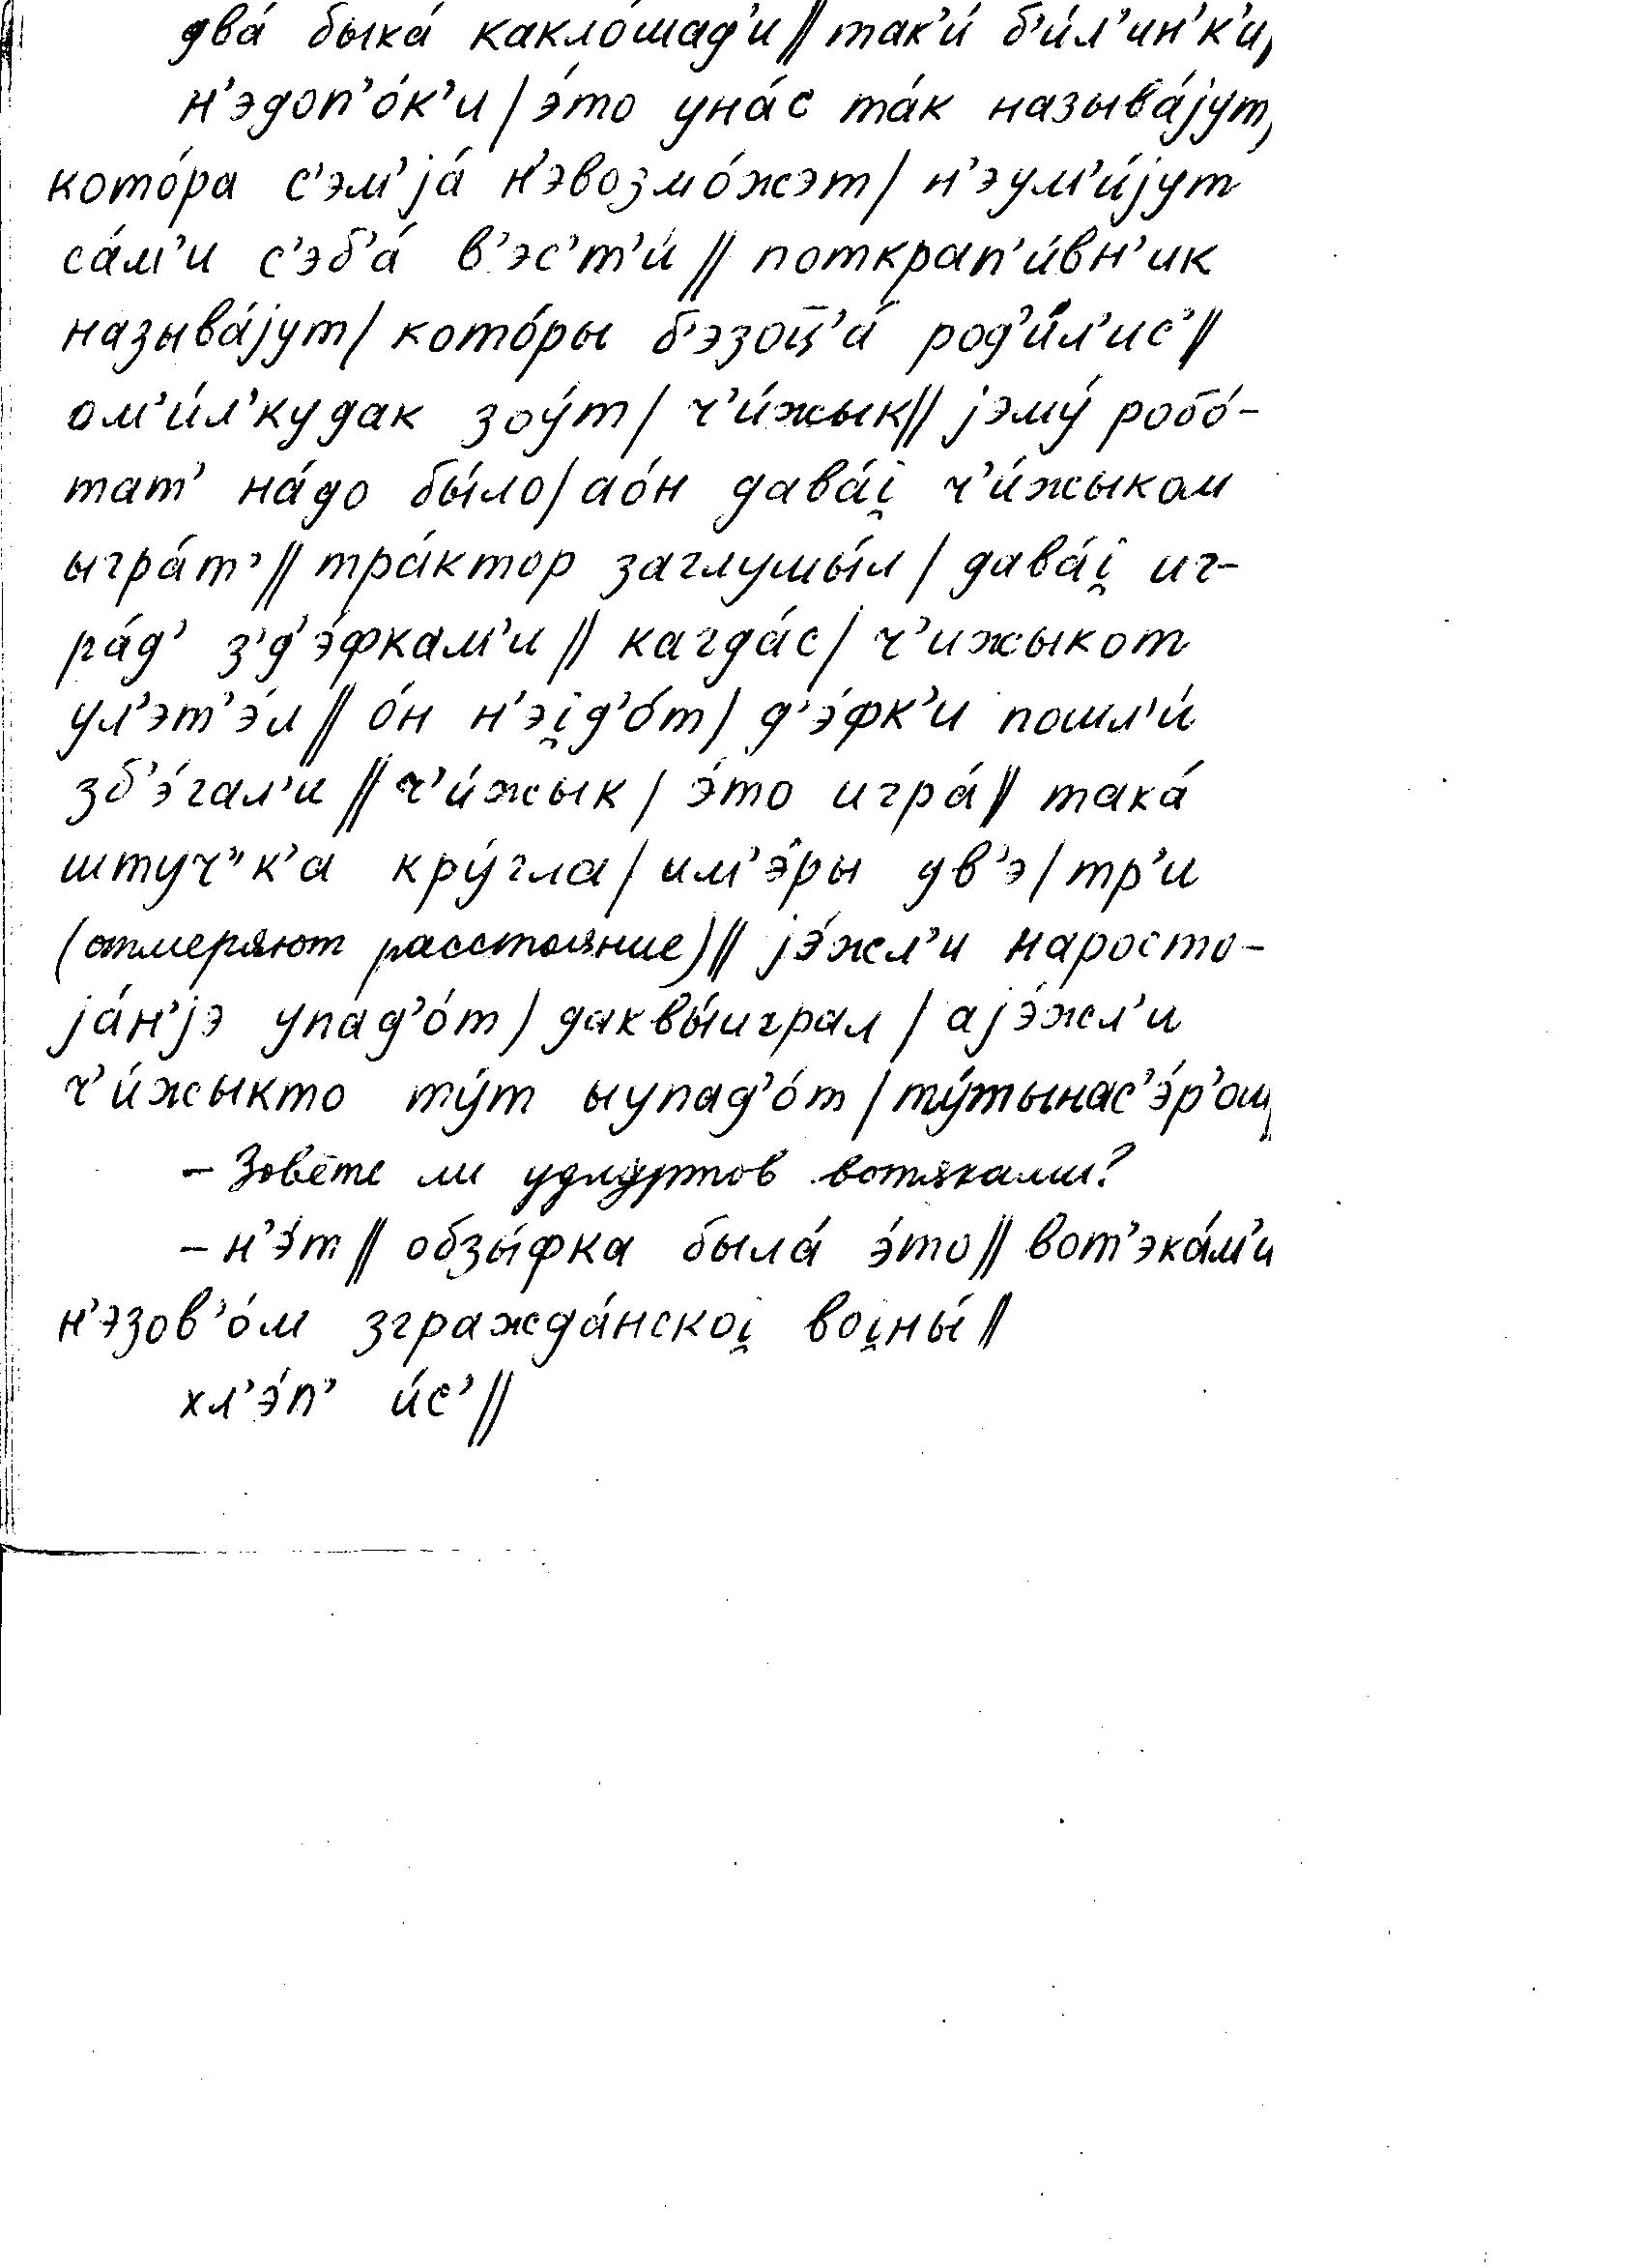 два́ быка́ какло́шад'и // так'и́ б'и́л'ин'к'и,
н'эдоп'о́к'и / э́то уна́с та́к называ́jут,
кото́ра с'эм'jа́ н'эвозмо́жэт / н'эум'и́jут
са́м'и с'эб'а́ в'эс'т'и́ // поткрап'и́вн'ик
называ́jут / кото́ры б'эзоц̅'а́ род'и́л'ис' //
ом'и́л'кудак зоу́т / ч'и́жык // jэму́ робо́-
тат' на́до бы́ло / ао́н дава́i̯ ч'и́жыком
ыгра́т' // тра́ктор заглушы́л / дава́i̯ иг-
ра́д' з'д'э́фкам'и // кагда́с / ч'ижыкот
ул'эт'э́л // о́н н'эi̯д'о́т / д'э́фк'и пошл'и́
зб'э́гал'и // ч'и́жык / э́то игра́ // така́
штуч''к'а кру́гла / им'э́ры дв'э / тр'и
(отмеряют расстояние) // jэ́жл'и наросто-
jа́н'jэ упад'о́т / даквы́играл / аjэ́жл'и
ч'и́жыкто ту́т ыупад'о́т / ту́тынас'э́р'ош,
– Зовёте ли удмуртов вотяками?
– н'э́т // обзы́фка была́ э́то // вот'эка́м'и
н'эзов'о́м згражда́нскоi̯ воi̯ны́ //
хл'э́п' и́с' //